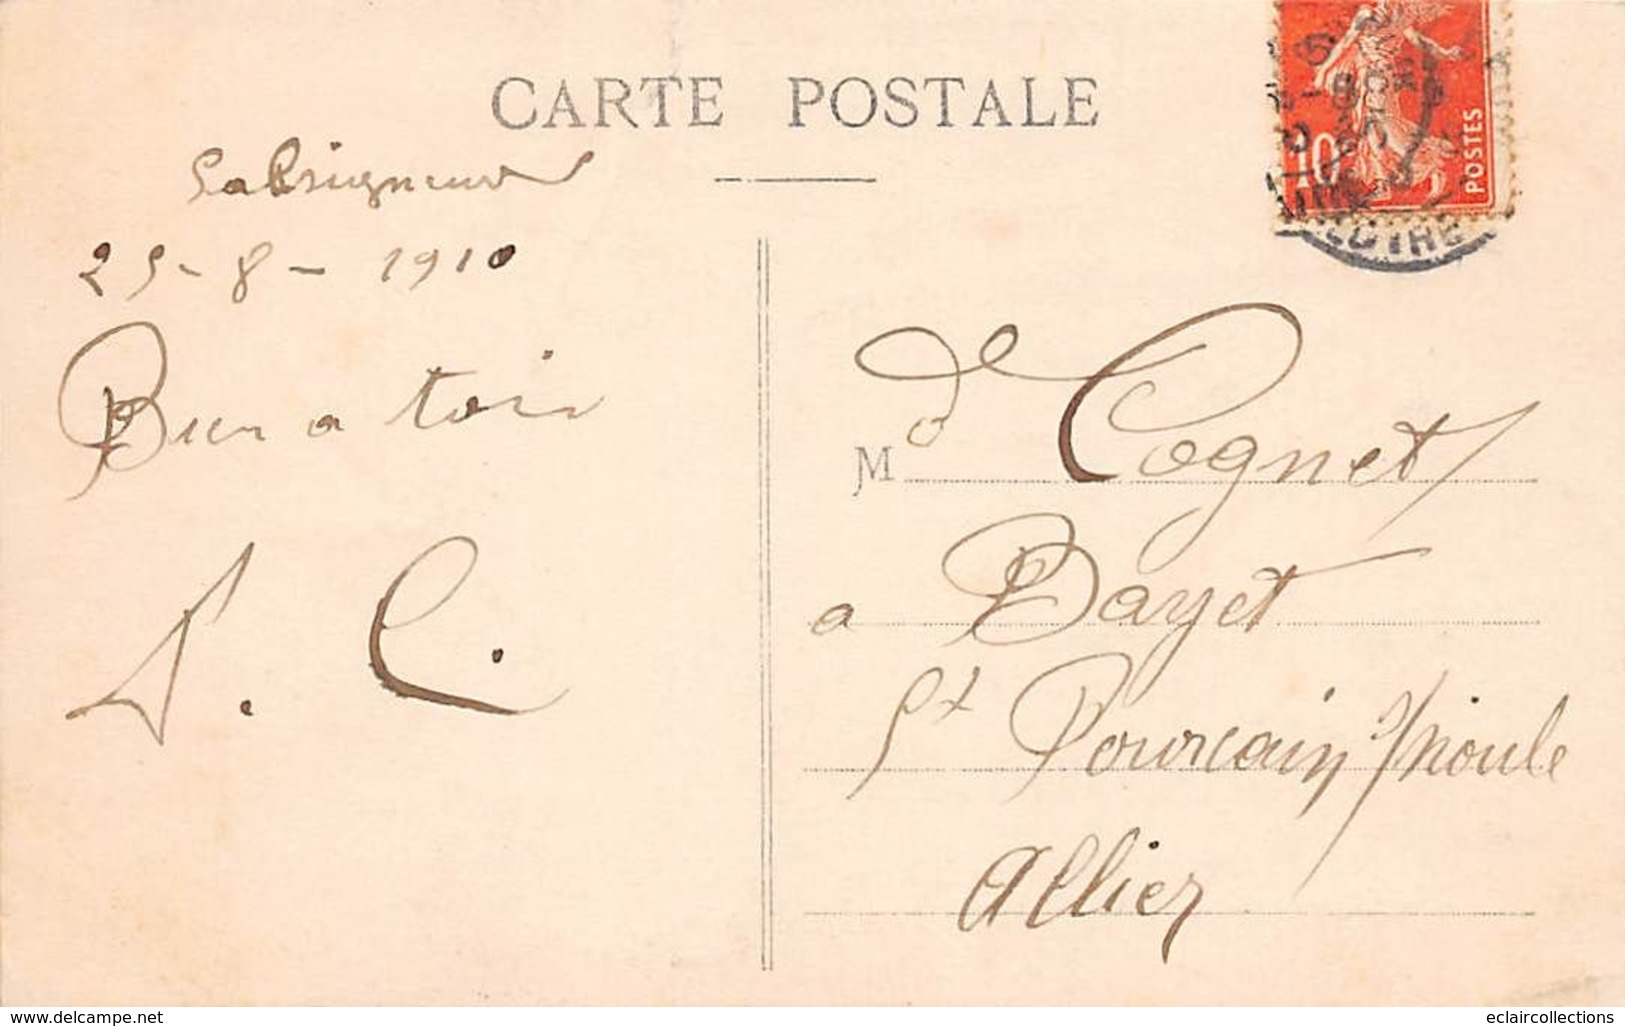 CARTE POSTALE
25-8-1910
Bien a toi
S. C.
10
POSTES
M de Cognet
a Bayet
St Pourcain s/sioule
Allier
www.delcampe.net
eclaircollections